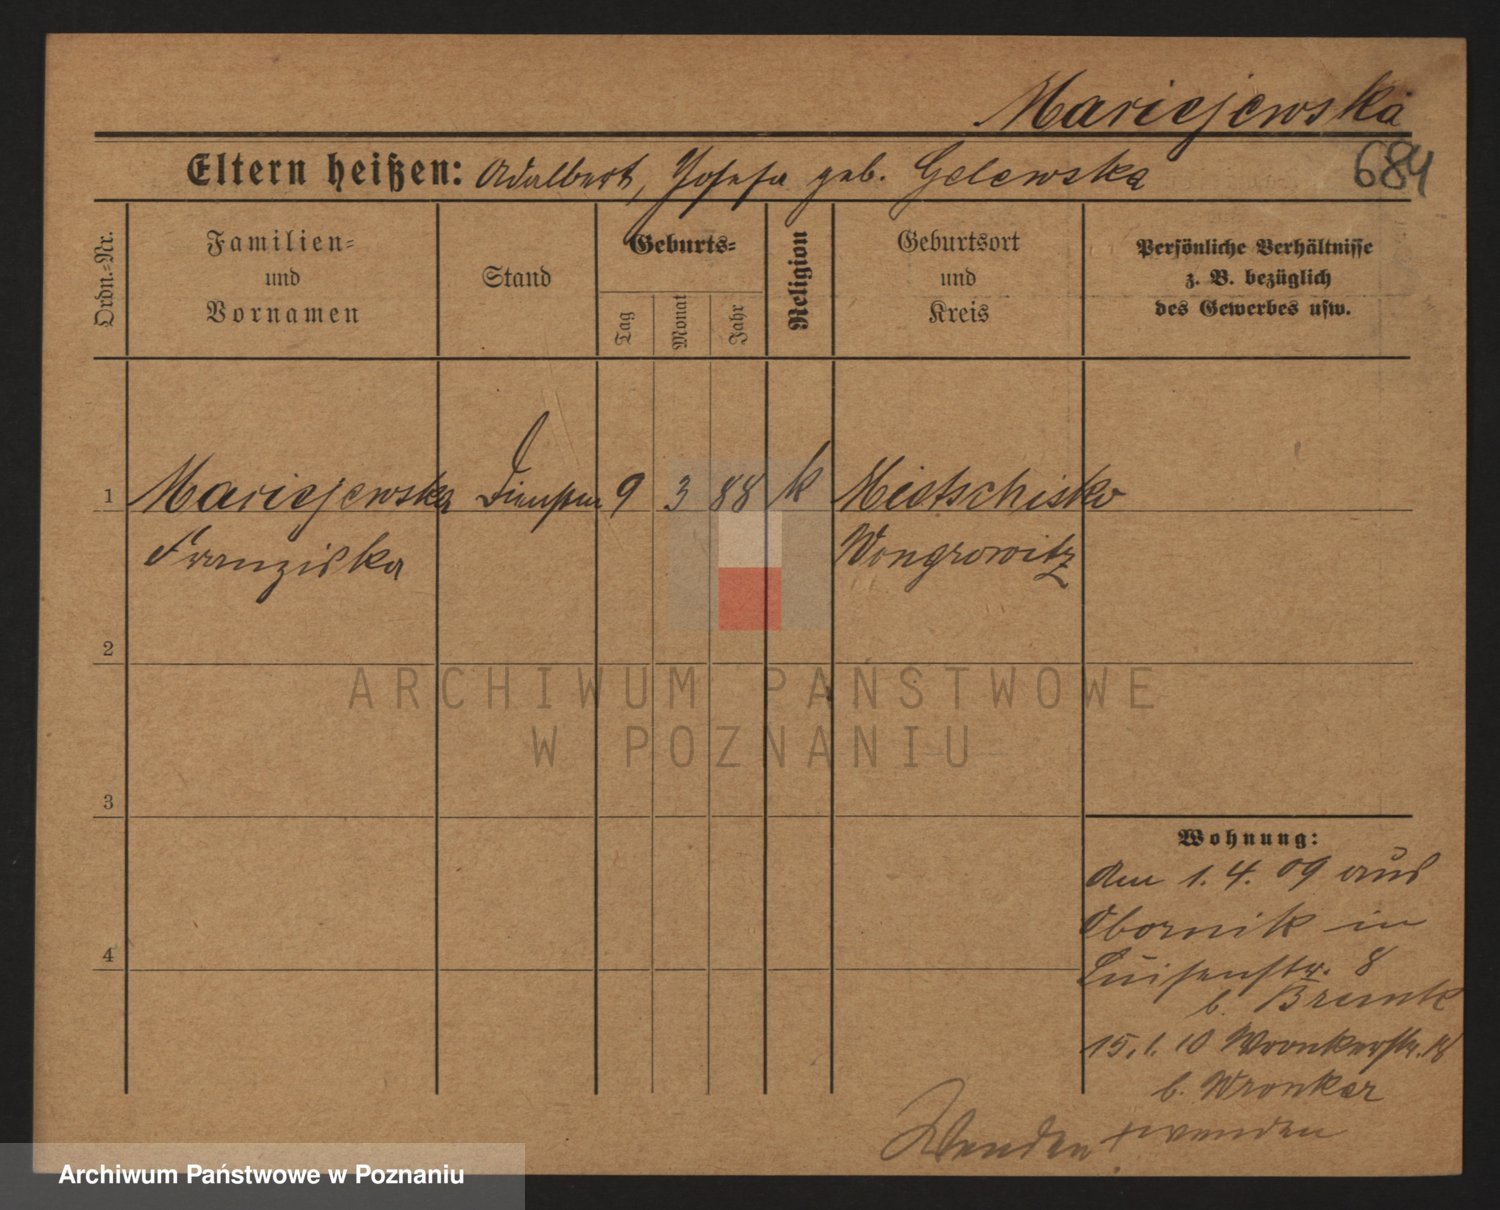 Mariejewska
684
Eltern heißen: Adalbert, Josefa geb. Gelewska
Ordn.=Nr.
Familien=
und
Vornamen
Stand
Geburts=
Tag
Monat
Jahr
Religion
Geburtsort
und
Kreis
Persönliche Verhältnisse
z. B. bezüglich
des Gewerbes usw.
1 Mariejewska 9 3 88 k Mietschisko
Franziska Wongrowitz
2
3
4
ARCHIWUM PAŃSTWOWE
W POZNANIU
Wohnung:
den 1. 4. 09 aus
Obornik in
Luisenstr. 8
b.
15. 1. 10 Wronkerstr. 18
b. Wronker
Wenden + wenden
Archiwum Państwowe w Poznaniu